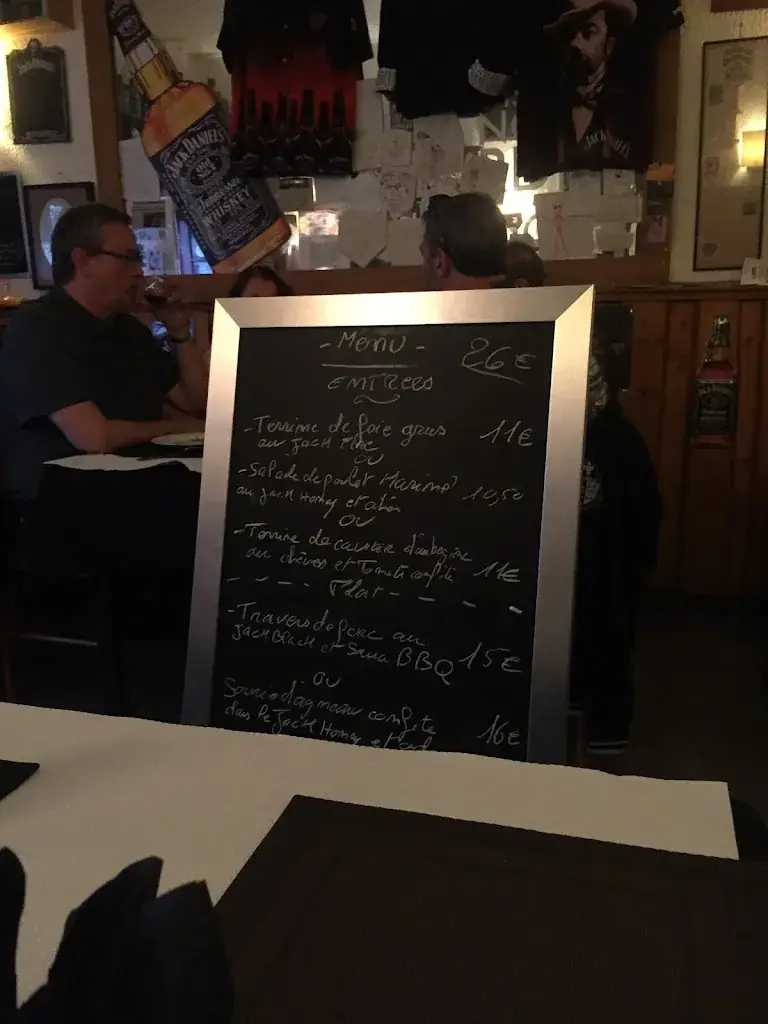 JACK DANIEL'S
WHISKEY
JACK DANIEL'S
- Menu - 26€
ENTREES
- Terrine de foie gras 11€
au Jack
OU
- Salade de poulet 10,50
au Jack Honey et
OU
- Terrine de caviar d'aubergine
au chèvre et Tomate confite 11€
- - - - Plat - - - -
- Travers de porc au
Jack Black et Sauce BBQ 15€
OU
Souris d'agneau confite
dans le Jack Honey et 16€